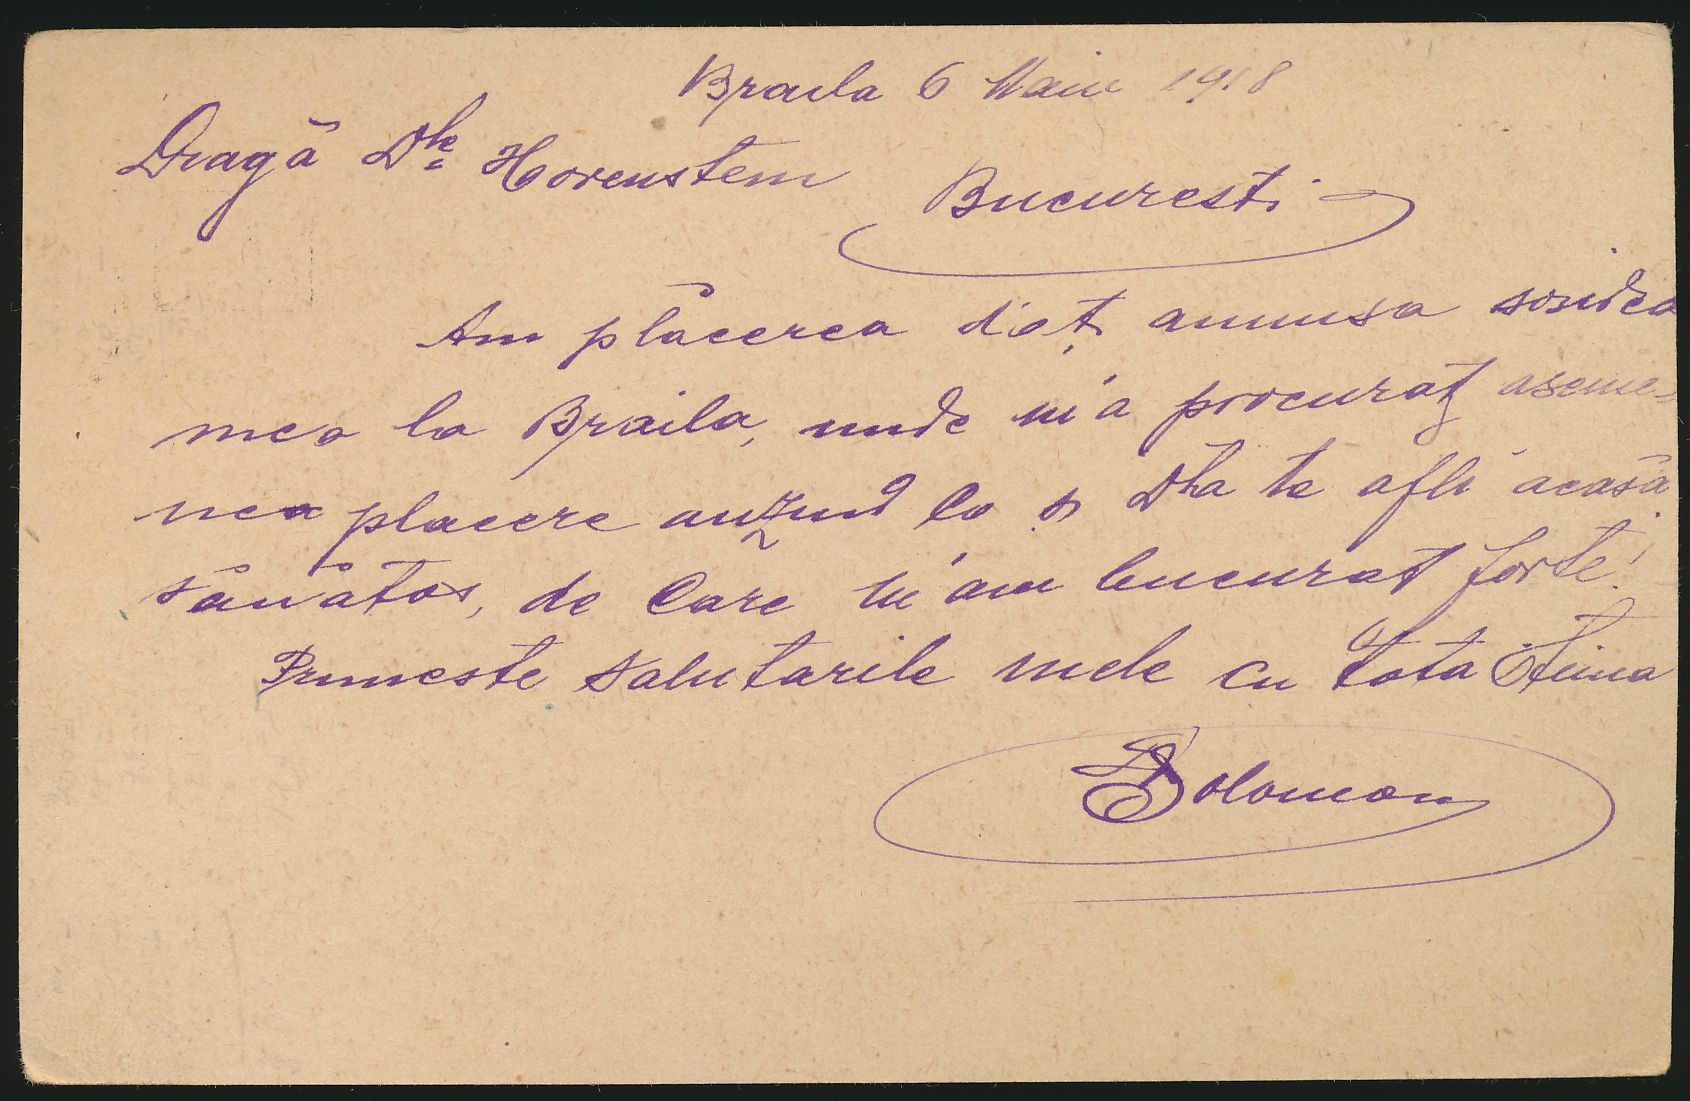 Braila 6 Maiu 1918
Dragă Dle Horenstein
Bucuresti
Am plăcerea a anunsa sosirea
mea la Braila, unde m'a procurat aseme-
nea placere auzind ca si Dta te afli acasă
sănătos, de care m'am bucurat forte!
Primeste salutarile mele cu tota stima
Solomon